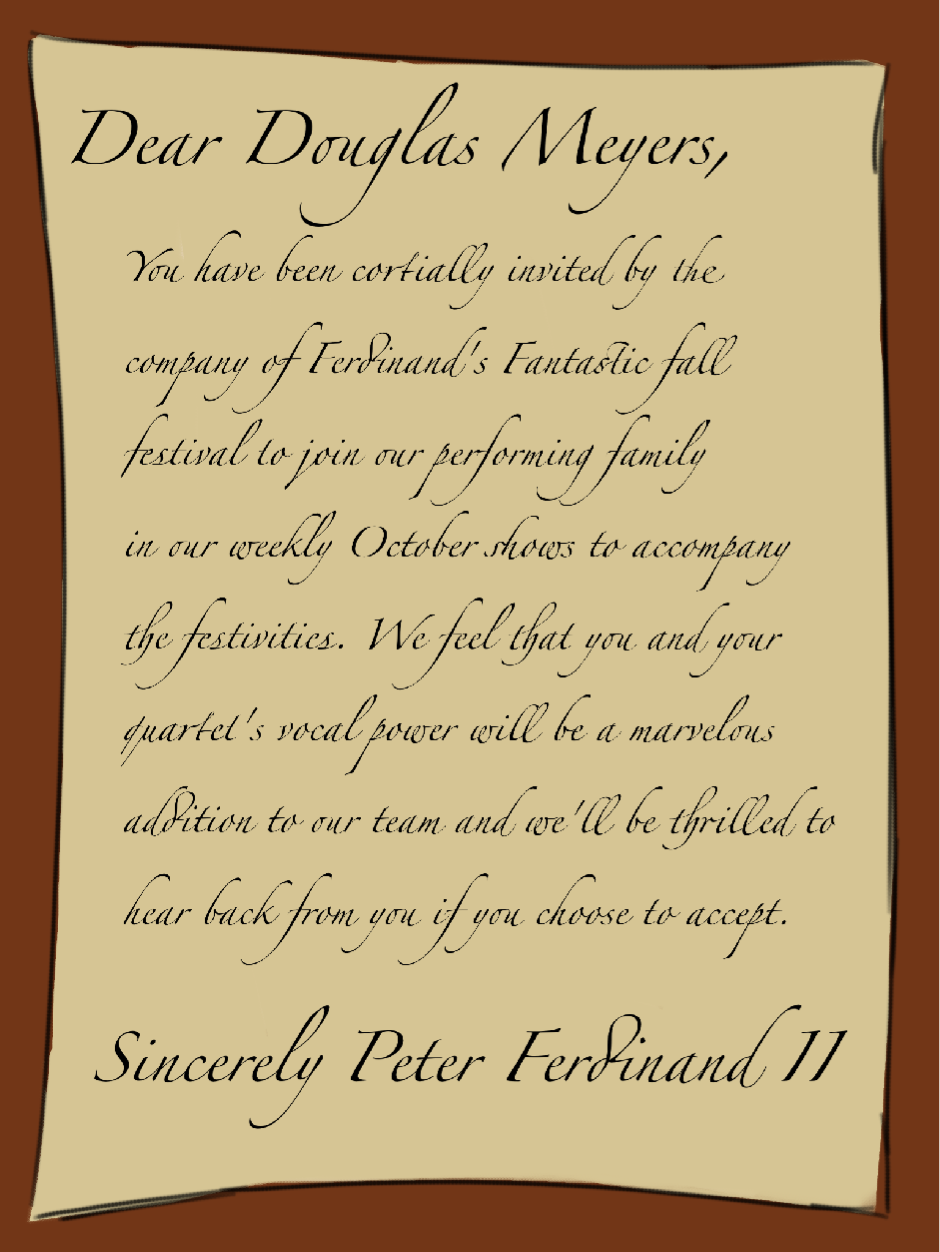 Dear Douglas Meyers,
You have been cortially invited by the
company of Ferdinand's Fantastic fall
festival to join our performing family
in our weekly October shows to accompany
the festivities. We feel that you and your
quartet's vocal power will be a marvelous
addition to our team and we'll be thrilled to
hear back from you if you choose to accept.
Sincerely Peter Ferdinand II